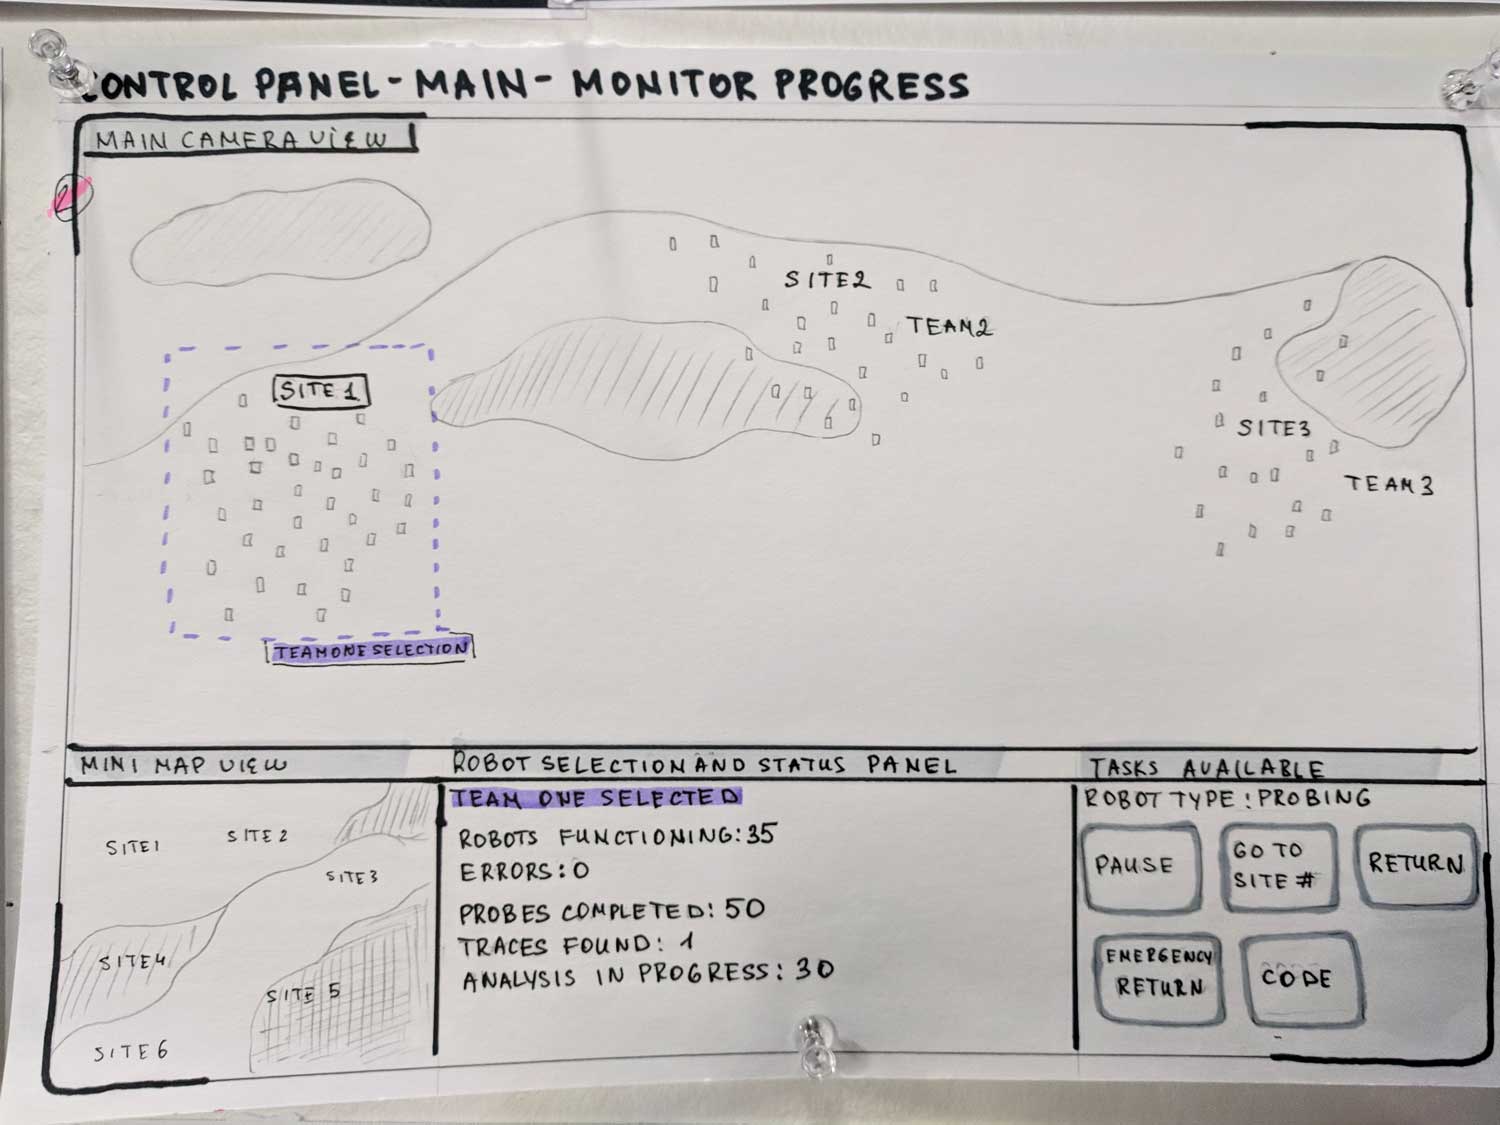 CONTROL PANEL - MAIN - MONITOR PROGRESS
MAIN CAMERA VIEW
2
SITE 2
TEAM 2
SITE 1
SITE 3
TEAM 3
TEAM ONE SELECTION
MINI MAP VIEW
SITE 1
SITE 2
SITE 3
SITE 4
SITE 5
SITE 6
ROBOT SELECTION AND STATUS PANEL
TEAM ONE SELECTED
ROBOTS FUNCTIONING: 35
ERRORS: 0
PROBES COMPLETED: 50
TRACES FOUND: 1
ANALYSIS IN PROGRESS: 30
TASKS AVAILABLE
ROBOT TYPE: PROBING
PAUSE
GO TO
SITE #
RETURN
EMERGENCY
RETURN
CODE